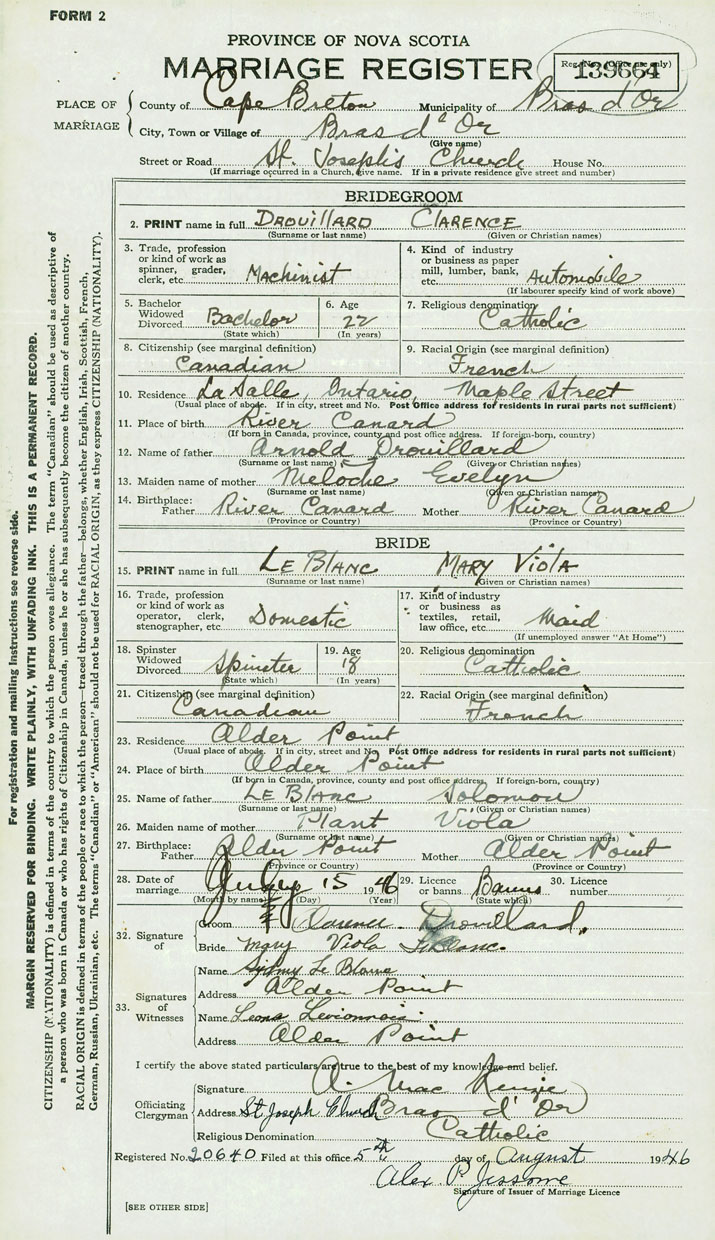 FORM 2
PROVINCE OF NOVA SCOTIA
MARRIAGE REGISTER
Reg. No. (Office use only)
139664
PLACE OF MARRIAGE
County of Cape Breton Municipality of Bras d'Or
City, Town or Village of Bras d'Or
(Give name)
Street or Road St. Joseph's Church House No.
(If marriage occurred in a Church, give name. If in a private residence give street and number)
BRIDEGROOM
2. PRINT name in full DROUILLARD CLARENCE
(Surname or last name) (Given or Christian names)
3. Trade, profession or kind of work as spinner, grader, clerk, etc. Machinist
4. Kind of industry or business as paper mill, lumber, bank, etc. Automobile
(If labourer specify kind of work above)
5. Bachelor Widowed Divorced Bachelor
(State which)
6. Age 22
(In years)
7. Religious denomination Catholic
8. Citizenship (see marginal definition) Canadian
9. Racial Origin (see marginal definition) French
10. Residence La Salle, Ontario, Maple Street
(Usual place of abode. If in city, street and No. Post Office address for residents in rural parts not sufficient)
11. Place of birth River Canard
(If born in Canada, province, county and post office address. If foreign-born, country)
12. Name of father Arnold Drouillard
(Surname or last name) (Given or Christian names)
13. Maiden name of mother Meloche Evelyn
(Surname or last name) (Given or Christian names)
14. Birthplace: Father River Canard Mother River Canard
(Province or Country) (Province or Country)
BRIDE
15. PRINT name in full LE BLANC MARY VIOLA
(Surname or last name) (Given or Christian names)
16. Trade, profession or kind of work as operator, clerk, stenographer, etc. Domestic
17. Kind of industry or business as textiles, retail, law office, etc. Maid
(If unemployed answer "At Home")
18. Spinster Widowed Divorced Spinster
(State which)
19. Age 18
(In years)
20. Religious denomination Catholic
21. Citizenship (see marginal definition) Canadian
22. Racial Origin (see marginal definition) French
23. Residence Alder Point
(Usual place of abode. If in city, street and No. Post Office address for residents in rural parts not sufficient)
24. Place of birth Alder Point
(If born in Canada, province, county and post office address. If foreign-born, country)
25. Name of father LE BLANC Solomon
(Surname or last name) (Given or Christian names)
26. Maiden name of mother Plant Viola
(Surname or last name) (Given or Christian names)
27. Birthplace: Father Alder Point Mother Alder Point
(Province or Country) (Province or Country)
28. Date of marriage July 15 1946
(Month by name) (Day) (Year)
29. Licence or banns Banns
(State which)
30. Licence number
32. Signature of
Groom Clarence Drouillard.
Bride Mary Viola LeBlanc.
33. Signatures of Witnesses
Name Sydney Le Blanc
Address Alder Point
Name Leona
Address Alder Point
I certify the above stated particulars are true to the best of my knowledge and belief.
Officiating Clergyman
Signature A. MacKenzie
Address St Joseph Church Bras d'Or
Religious Denomination Catholic
Registered No. 20640 Filed at this office 5th day of August 1946
Alex P. Jessome
Signature of Issuer of Marriage Licence
[SEE OTHER SIDE]
For registration and mailing instructions see reverse side.
MARGIN RESERVED FOR BINDING. WRITE PLAINLY, WITH UNFADING INK. THIS IS A PERMANENT RECORD.
CITIZENSHIP (NATIONALITY) is defined in terms of the country to which the person owes allegiance. The term "Canadian" should be used as descriptive of
a person who was born in Canada or who has rights of Citizenship in Canada, unless he or she has subsequently become the citizen of another country.
RACIAL ORIGIN is defined in terms of the people or race to which the person—traced through the father—belongs, whether English, Irish, Scottish, French,
German, Russian, Ukrainian, etc. The terms "Canadian" or "American" should not be used for RACIAL ORIGIN, as they express CITIZENSHIP (NATIONALITY).